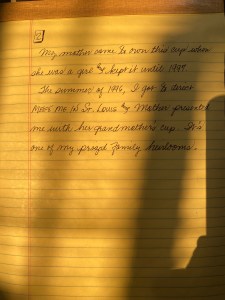 2
My mother came to own this cup when
she was a girl & kept it until 1997.
The summer of 1996, I got to direct
MEET ME IN St. Louis & Mother presented
me with her grandmother's cup. It's
one of my prized family heirlooms.